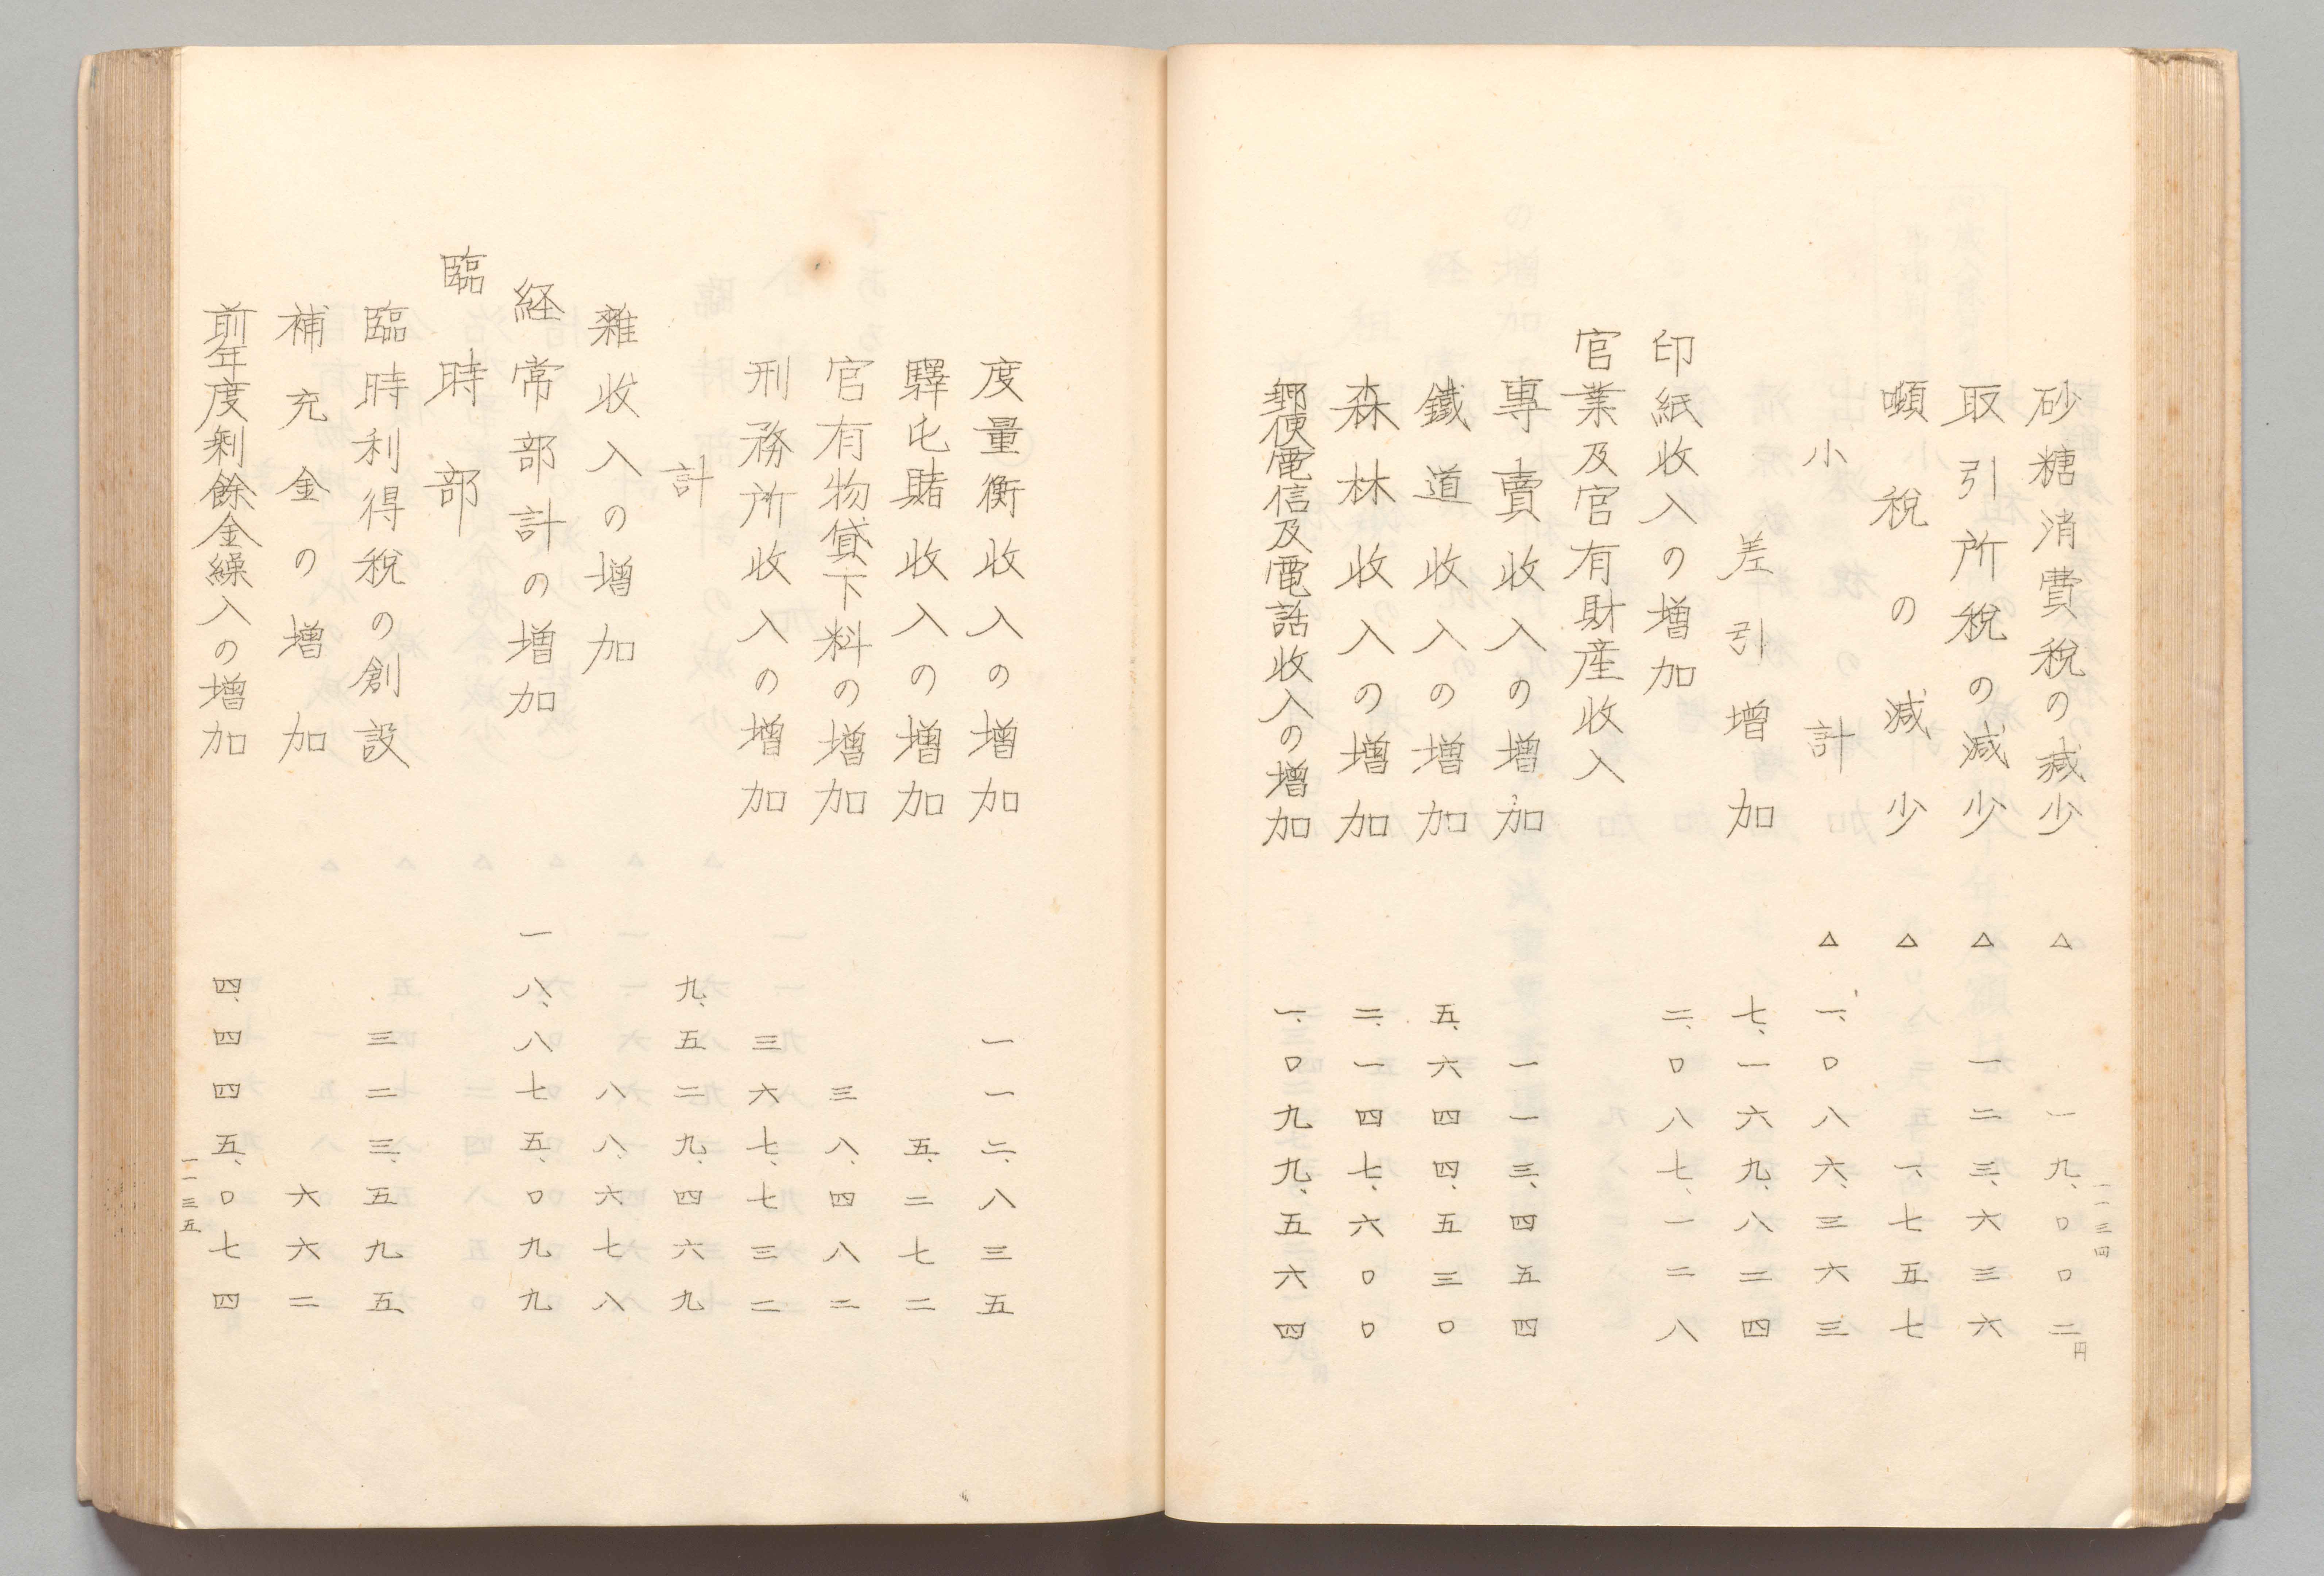 砂糖消費税の減少 △ 一九、〇〇二円
取引所税の減少 △ 一二三、六三六
噸税の減少 △ 一、七五七
小計 △ 一、〇八六、三六三
差引増加 七、一六九、八二四
印紙收入の増加 二、〇八七、一二八
官業及官有財産收入
專賣收入の増加 一一三、四五四
鐵道收入の増加 五、六四四、五三〇
森林收入の増加 二、一四七、六〇〇
郵便電信及電話收入の増加 一、〇九九、五六四
一一三四
度量衡收入の増加 一一二、八三五
驛屯賭收入の増加 五、二七二
官有物貸下料の増加 三八、四八二
刑務所收入の増加 三六七、七三二
計 九、五二九、四六九
雜收入の増加 八八、六七八
経常部計の増加 一八、八七五、〇九九
臨時部
臨時利得税の創設 三二三、五九五
補充金の増加 六六二
前年度剰餘金繰入の増加 四、四四五、〇七四
一一三五